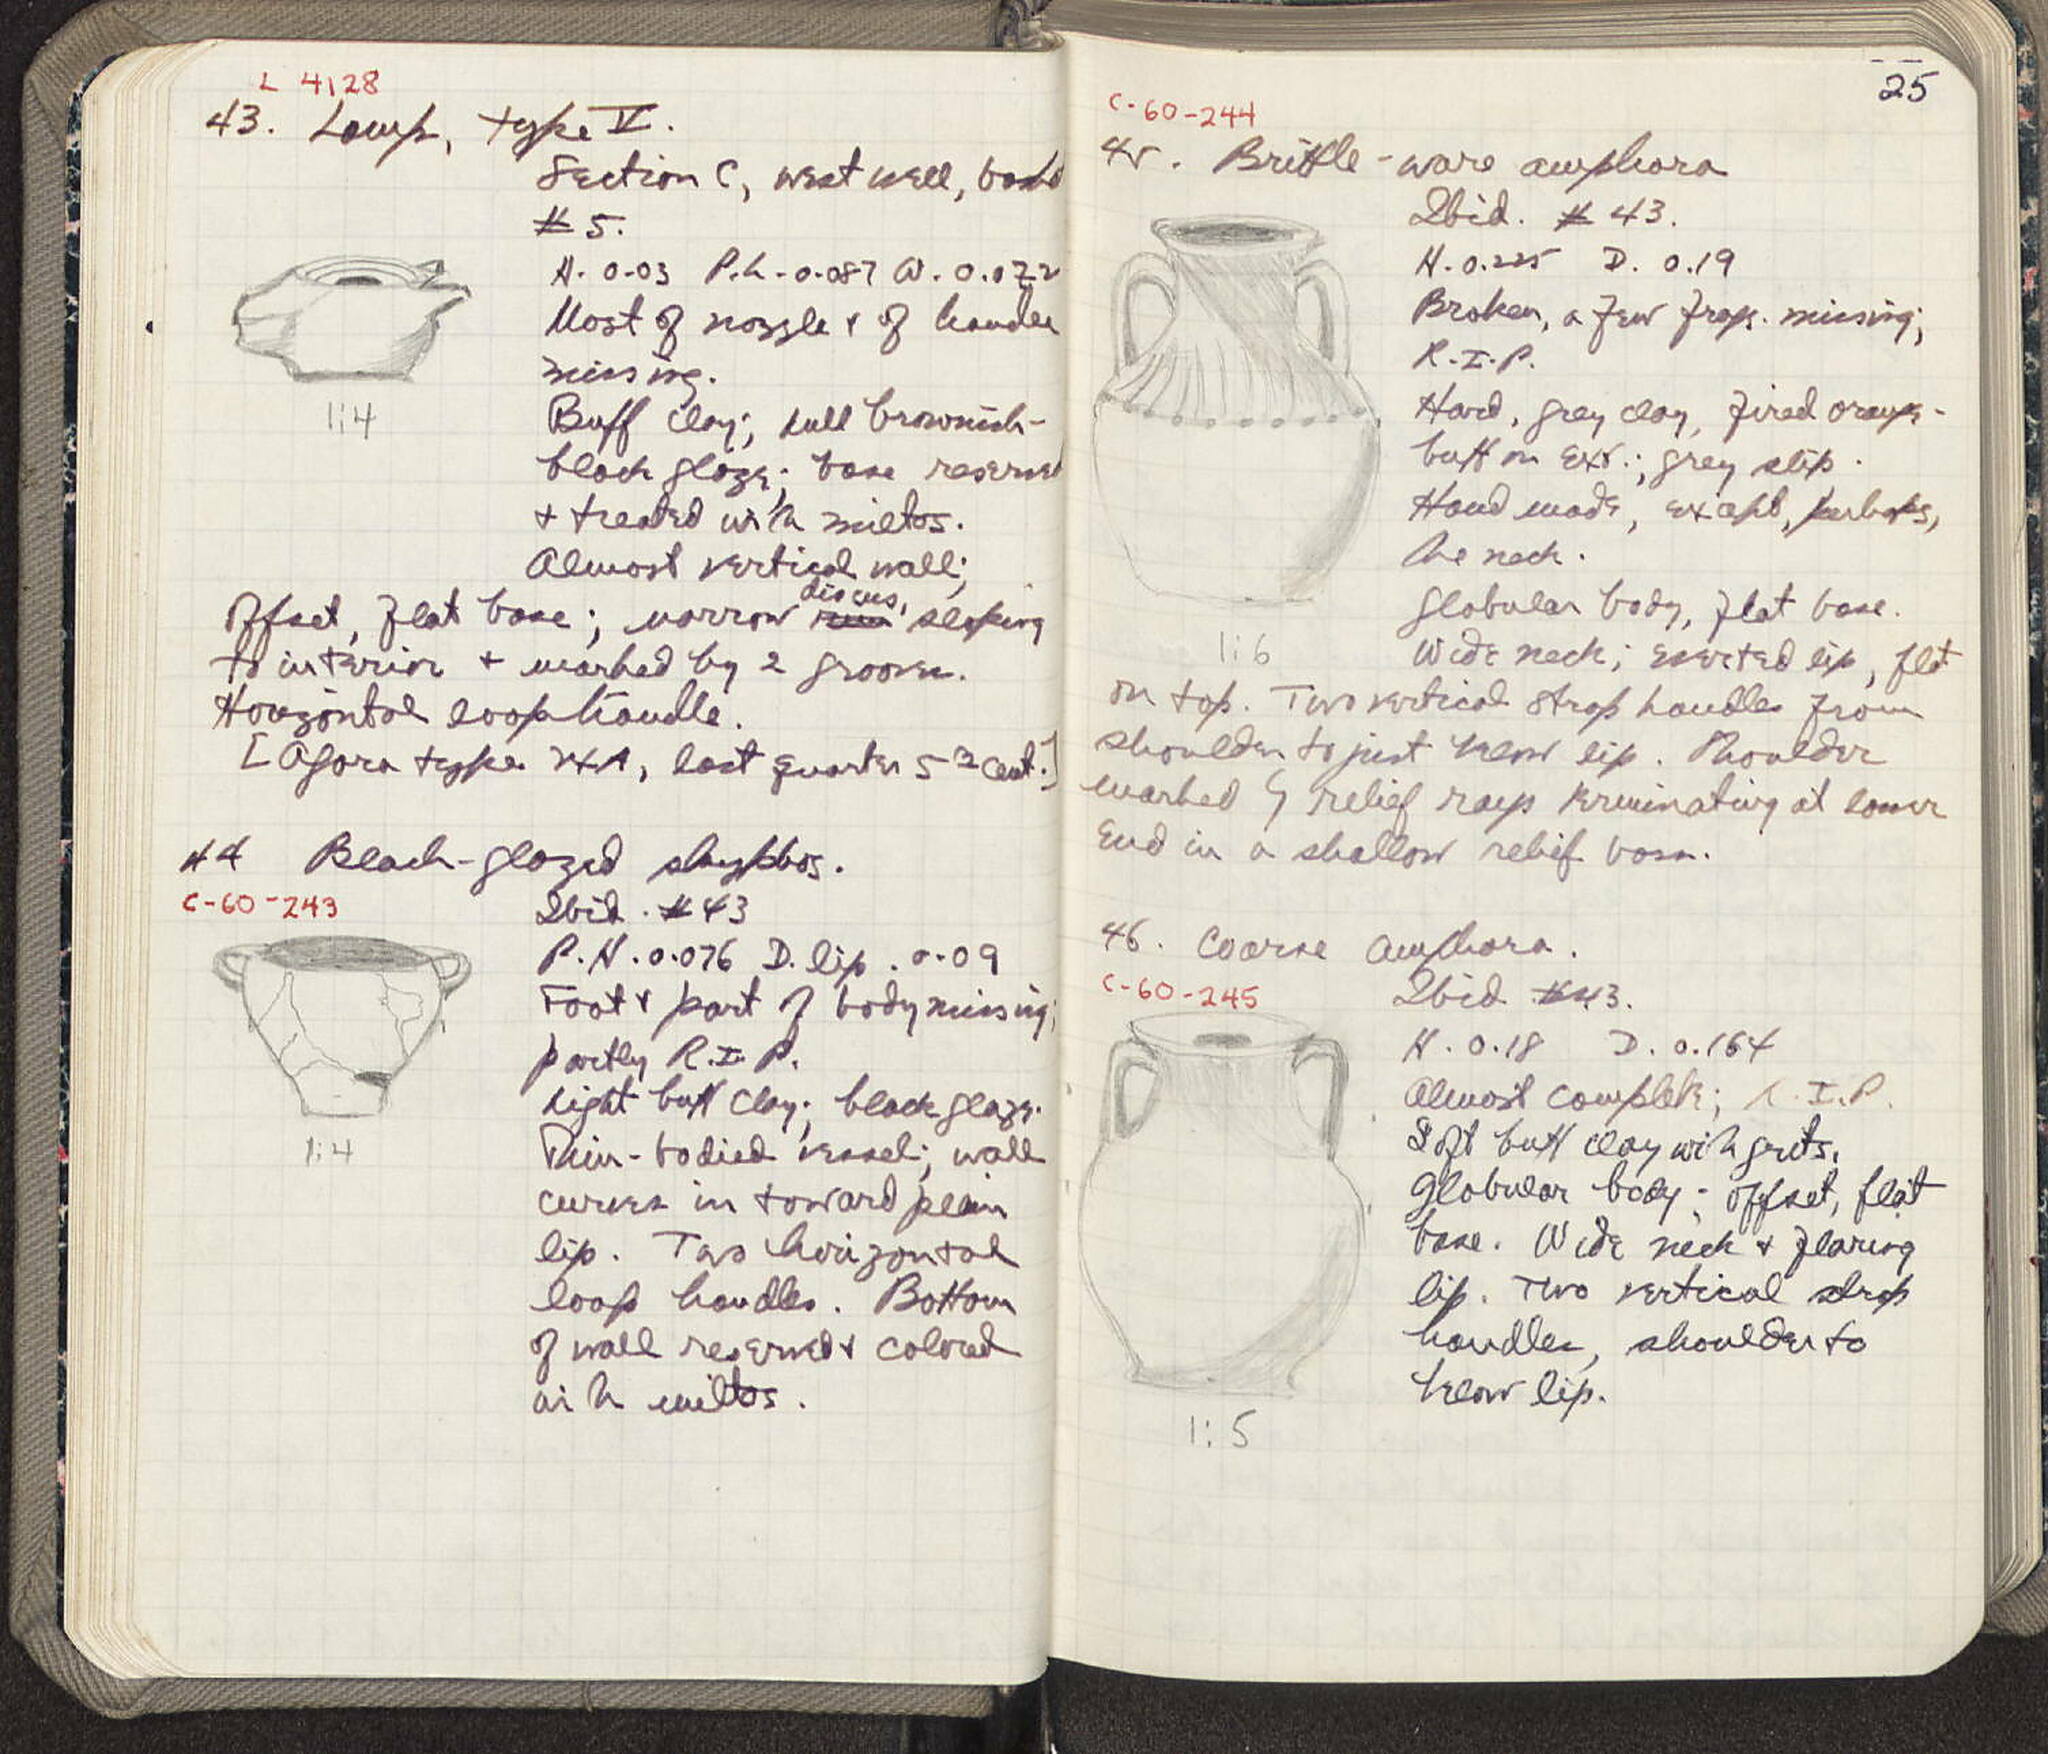 L 4128
43. Lamp, type V.
Section C, west well, basket
# 5.
H. 0.03 P.L. 0.087 W. 0.072
Most of nozzle + of handle
missing.
Buff clay; dull brownish-
black glaze; base reserved
+ treated with miltos.
Almost vertical wall;
offset, flat base; narrow discus, sloping
to interior + marked by 2 grooves.
Horizontal loop handle.
1:4
44 Black-glazed skyphos.
C-60-243
Ibid. #43
P.H. 0.076 D. lip. 0.09
Foot + part of body missing;
partly R.I.P.
Light buff clay; black glaze.
Thin-bodied vessel; wall
curves in toward plain
lip. Two horizontal
loop handles. Bottom
of wall reserved + colored
with miltos.
1:4
25
C-60-244
45. Brittle-ware amphora
Ibid. # 43.
H. 0.225 D. 0.19
Broken, a few frags. missing;
R.I.P.
Hard, grey clay, fired orange-
buff on ext.; grey slip.
Hand made, except, perhaps,
the neck.
Globular body, flat base.
Wide neck; everted lip, flat
on top. Two vertical strap handles from
shoulder to just below lip. Shoulder
marked by relief rays terminating at lower
end in a shallow relief boss.
1:6
46. Coarse amphora.
C-60-245
Ibid #43.
H. 0.18 D. 0.164
Almost complete; R.I.P.
Soft buff clay with grits.
Globular body; offset, flat
base. Wide neck + flaring
lip. Two vertical strap
handles, shoulder to
below lip.
1:5